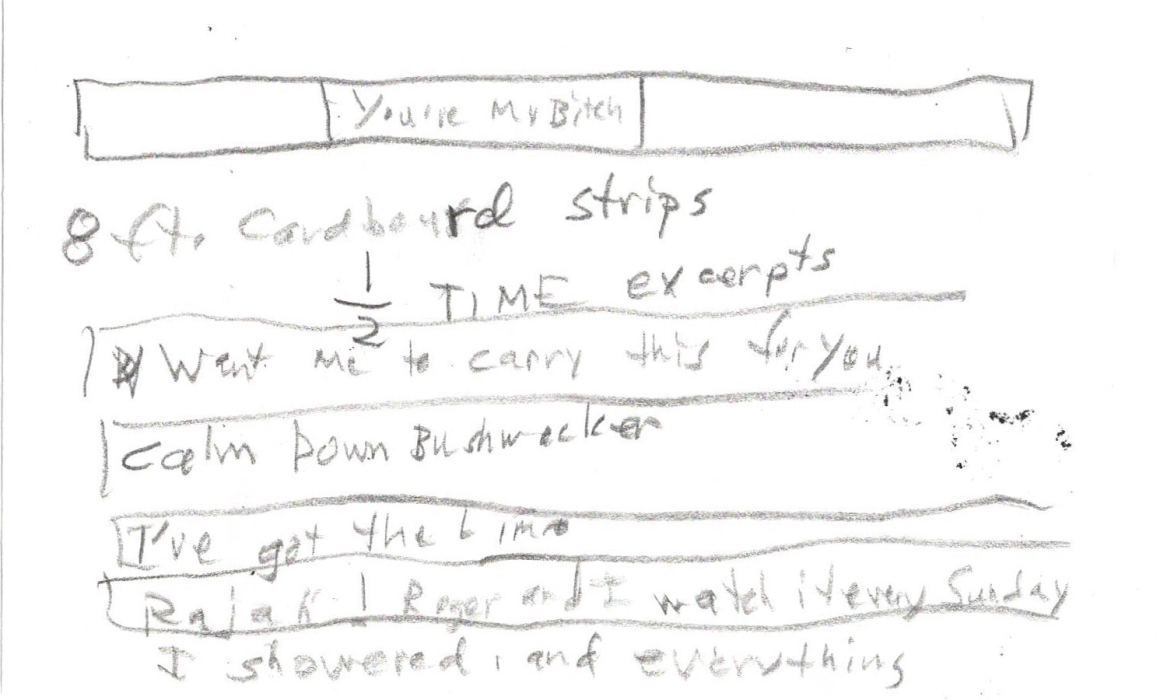 You're My Bitch
8 ft. Cardboard strips
1/2 TIME excerpts
Want me to carry this for you
Calm Down Bushwacker
I've got the Limo
Rajah | Roger and I watch it every Sunday
I showered, and everything